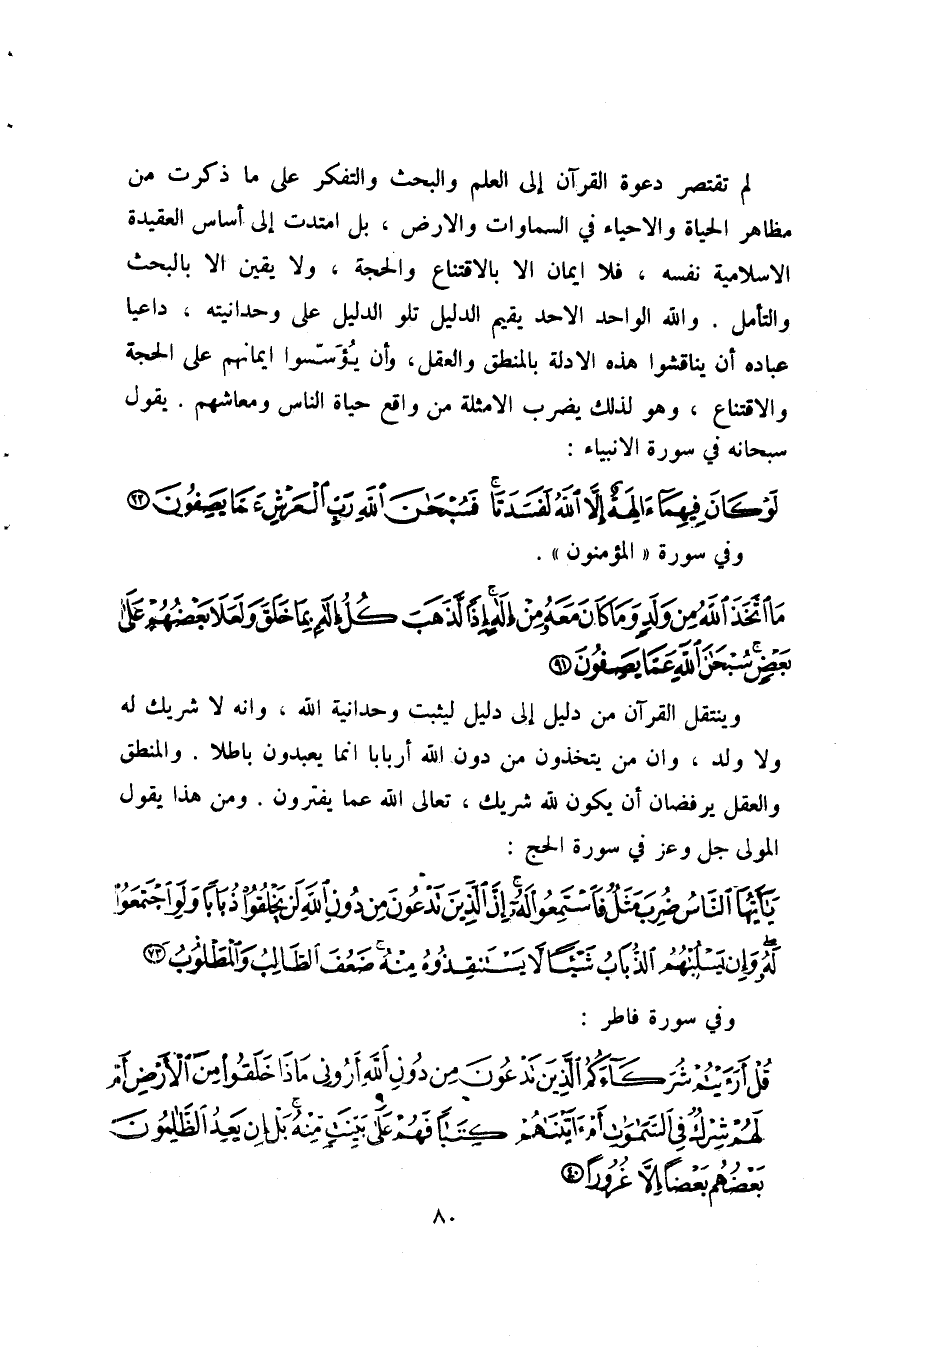 لم تقتصر دعوة القرآن إلى العلم والبحث والتفكر على ما ذكرت من
مظاهر الحياة والاحياء في السماوات والارض ، بل امتدت إلى أساس العقيدة
الاسلامية نفسه ، فلا ايمان الا بالاقتناع والحجة ، ولا يقين الا بالبحث
والتأمل . والله الواحد الاحد يقيم الدليل تلو الدليل على وحدانيته ، داعيا
عباده أن يناقشوا هذه الادلة بالمنطق والعقل، وأن يُؤَسّسوا ايمانهم على الحجة
والاقتناع ، وهو لذلك يضرب الامثلة من واقع حياة الناس ومعاشهم . يقول
سبحانه في سورة الانبياء :
لَوْ كَانَ فِيهِمَآ ءَالِهَةٌ إِلَّا ٱللَّهُ لَفَسَدَتَا ۚ فَسُبْحَٰنَ ٱللَّهِ رَبِّ ٱلْعَرْشِ عَمَّا يَصِفُونَ ٢٢
وفي سورة « المؤمنون » .
مَا ٱتَّخَذَ ٱللَّهُ مِن وَلَدٍ وَمَا كَانَ مَعَهُۥ مِنْ إِلَٰهٍ ۚ إِذًا لَّذَهَبَ كُلُّ إِلَٰهٍۭ بِمَا خَلَقَ وَلَعَلَا بَعْضُهُمْ عَلَىٰ
بَعْضٍ ۚ سُبْحَٰنَ ٱللَّهِ عَمَّا يَصِفُونَ ٩١
وينتقل القرآن من دليل إلى دليل ليثبت وحدانية الله ، وانه لا شريك له
ولا ولد ، وان من يتخذون من دون الله أربابا انما يعبدون باطلا . والمنطق
والعقل يرفضان أن يكون لله شريك ، تعالى الله عما يفترون . ومن هذا يقول
المولى جل وعز في سورة الحج :
يَٰٓأَيُّهَا ٱلنَّاسُ ضُرِبَ مَثَلٌ فَٱسْتَمِعُوا۟ لَهُۥٓ ۚ إِنَّ ٱلَّذِينَ تَدْعُونَ مِن دُونِ ٱللَّهِ لَن يَخْلُقُوا۟ ذُبَابًا وَلَوِ ٱجْتَمَعُوا۟
لَهُۥ ۖ وَإِن يَسْلُبْهُمُ ٱلذُّبَابُ شَيْـًٔا لَّا يَسْتَنقِذُوهُ مِنْهُ ۚ ضَعُفَ ٱلطَّالِبُ وَٱلْمَطْلُوبُ ٧٣
وفي سورة فاطر :
قُلْ أَرَءَيْتُمْ شُرَكَآءَكُمُ ٱلَّذِينَ تَدْعُونَ مِن دُونِ ٱللَّهِ أَرُونِى مَاذَا خَلَقُوا۟ مِنَ ٱلْأَرْضِ أَمْ
لَهُمْ شِرْكٌ فِى ٱلسَّمَٰوَٰتِ أَمْ ءَاتَيْنَٰهُمْ كِتَٰبًا فَهُمْ عَلَىٰ بَيِّنَتٍ مِّنْهُ ۚ بَلْ إِن يَعِدُ ٱلظَّٰلِمُونَ
بَعْضُهُم بَعْضًا إِلَّا غُرُورًا ٤٠
٨٠